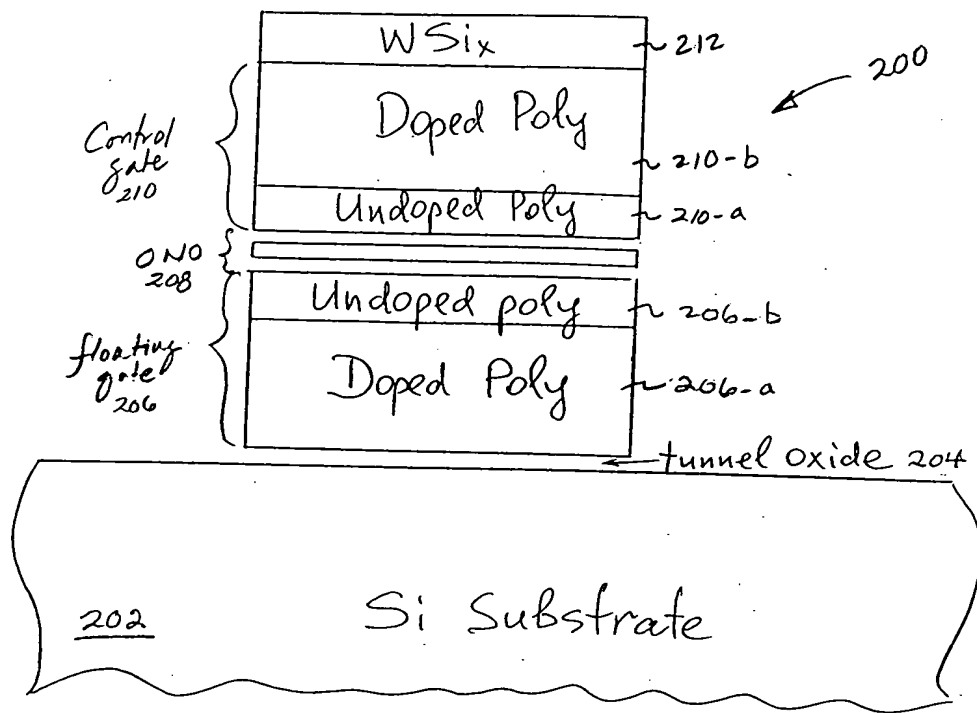 WSix
212
200
Control
gate
210
Doped Poly
210-b
Undoped Poly
210-a
ONO
208
Undoped poly
206-b
floating
gate
206
Doped Poly
206-a
tunnel oxide 204
202
Si Substrate